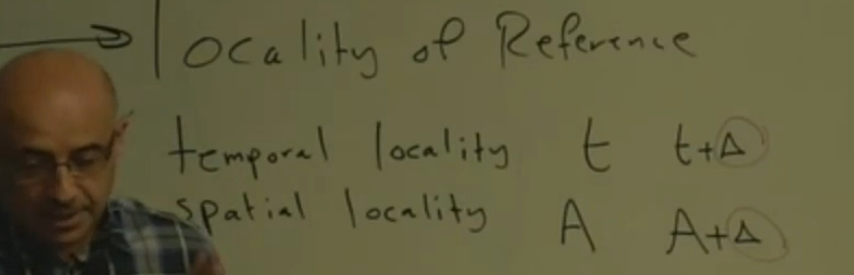 Locality of Reference
temporal locality t t+Δ
spatial locality A A+Δ